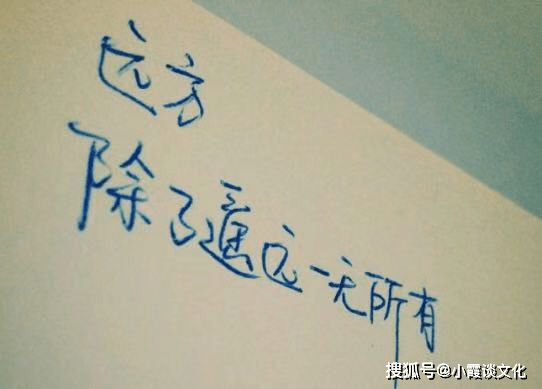 远方
除了遥远一无所有
搜狐号@小霞谈文化